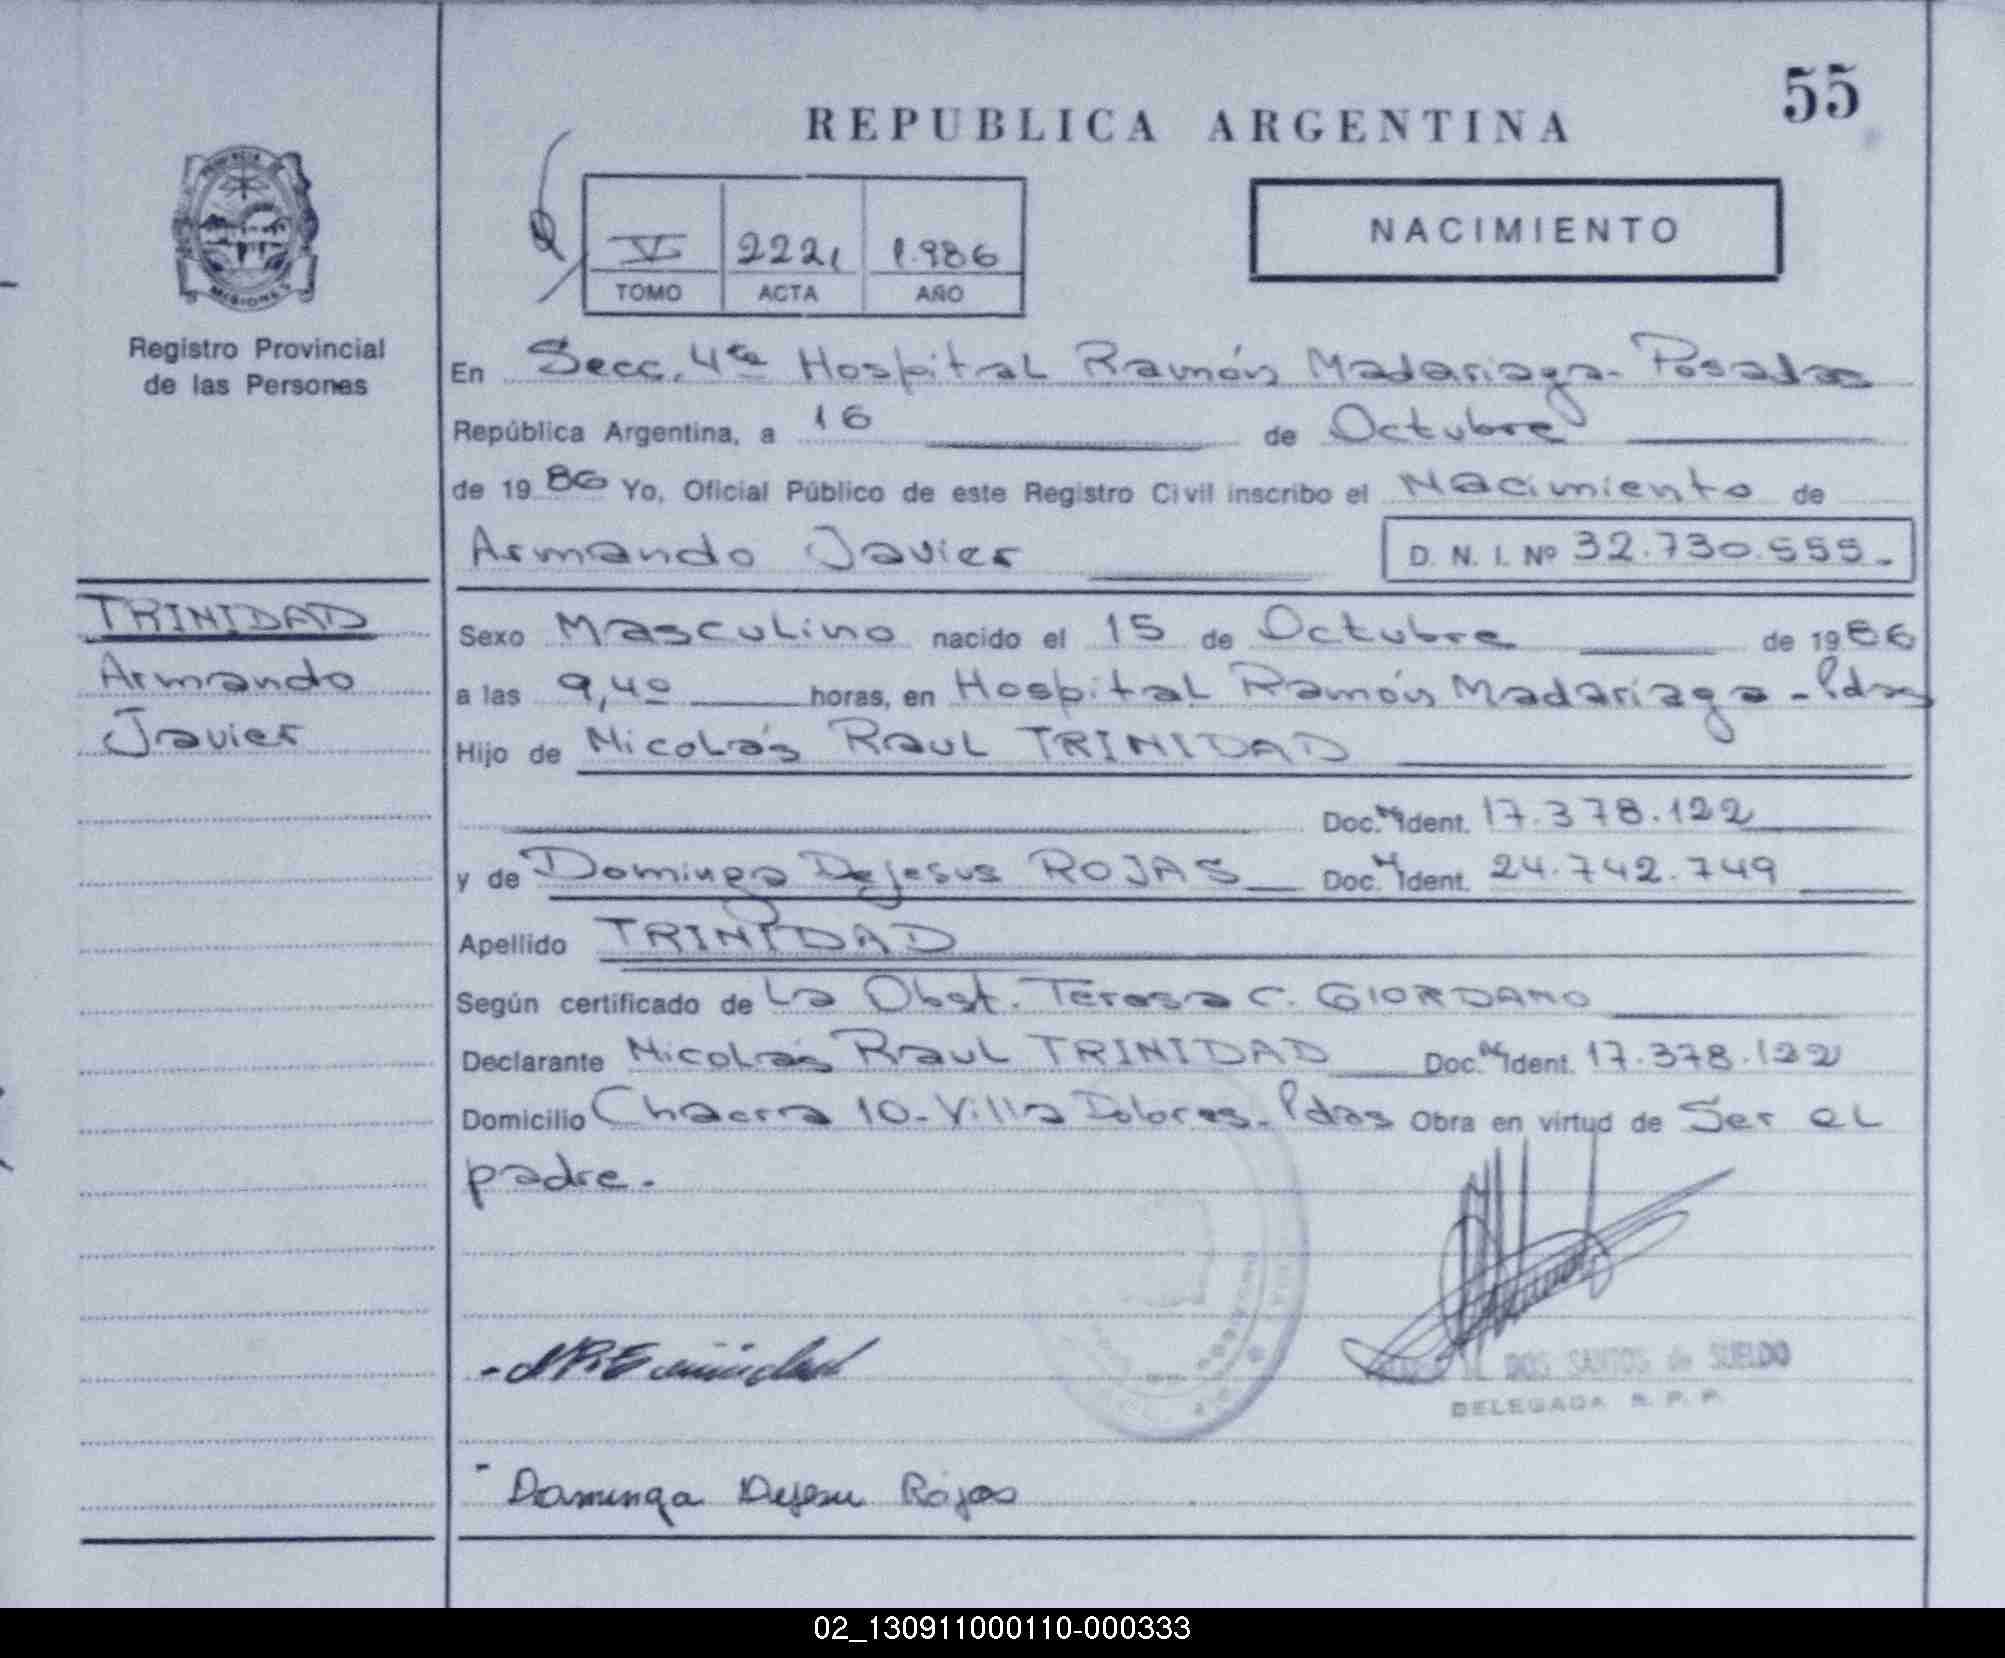 55
REPUBLICA ARGENTINA
NACIMIENTO
V 2221 1.986
TOMO ACTA AÑO
MISIONES
Registro Provincial
de las Personas
TRINIDAD
Armando
Javier
En Secc. 4ta Hospital Ramón Madariaga - Posadas
República Argentina, a 16 de Octubre
de 1986 Yo, Oficial Público de este Registro Civil inscribo el Nacimiento de
Armando Javier D. N. I. Nº 32.730.555.-
Sexo Masculino nacido el 15 de Octubre de 1986
a las 9,40 horas, en Hospital Ramón Madariaga - Pdas
Hijo de Nicolás Raul TRINIDAD
Doc. Nº Ident. 17.378.122
y de Dominga Dejesus ROJAS Doc. Nº Ident. 24.742.749
Apellido TRINIDAD
Según certificado de La Obst. Teresa C. GIORDANO
Declarante Nicolás Raul TRINIDAD Doc. Nº Ident. 17.378.122
Domicilio Chacra 10 - Villa Dolores - Pdas Obra en virtud de Ser el
padre.-
DOS SANTOS de SUELDO
DELEGADA R. P. P.
Dominga Dejesu Rojas
02_130911000110-000333